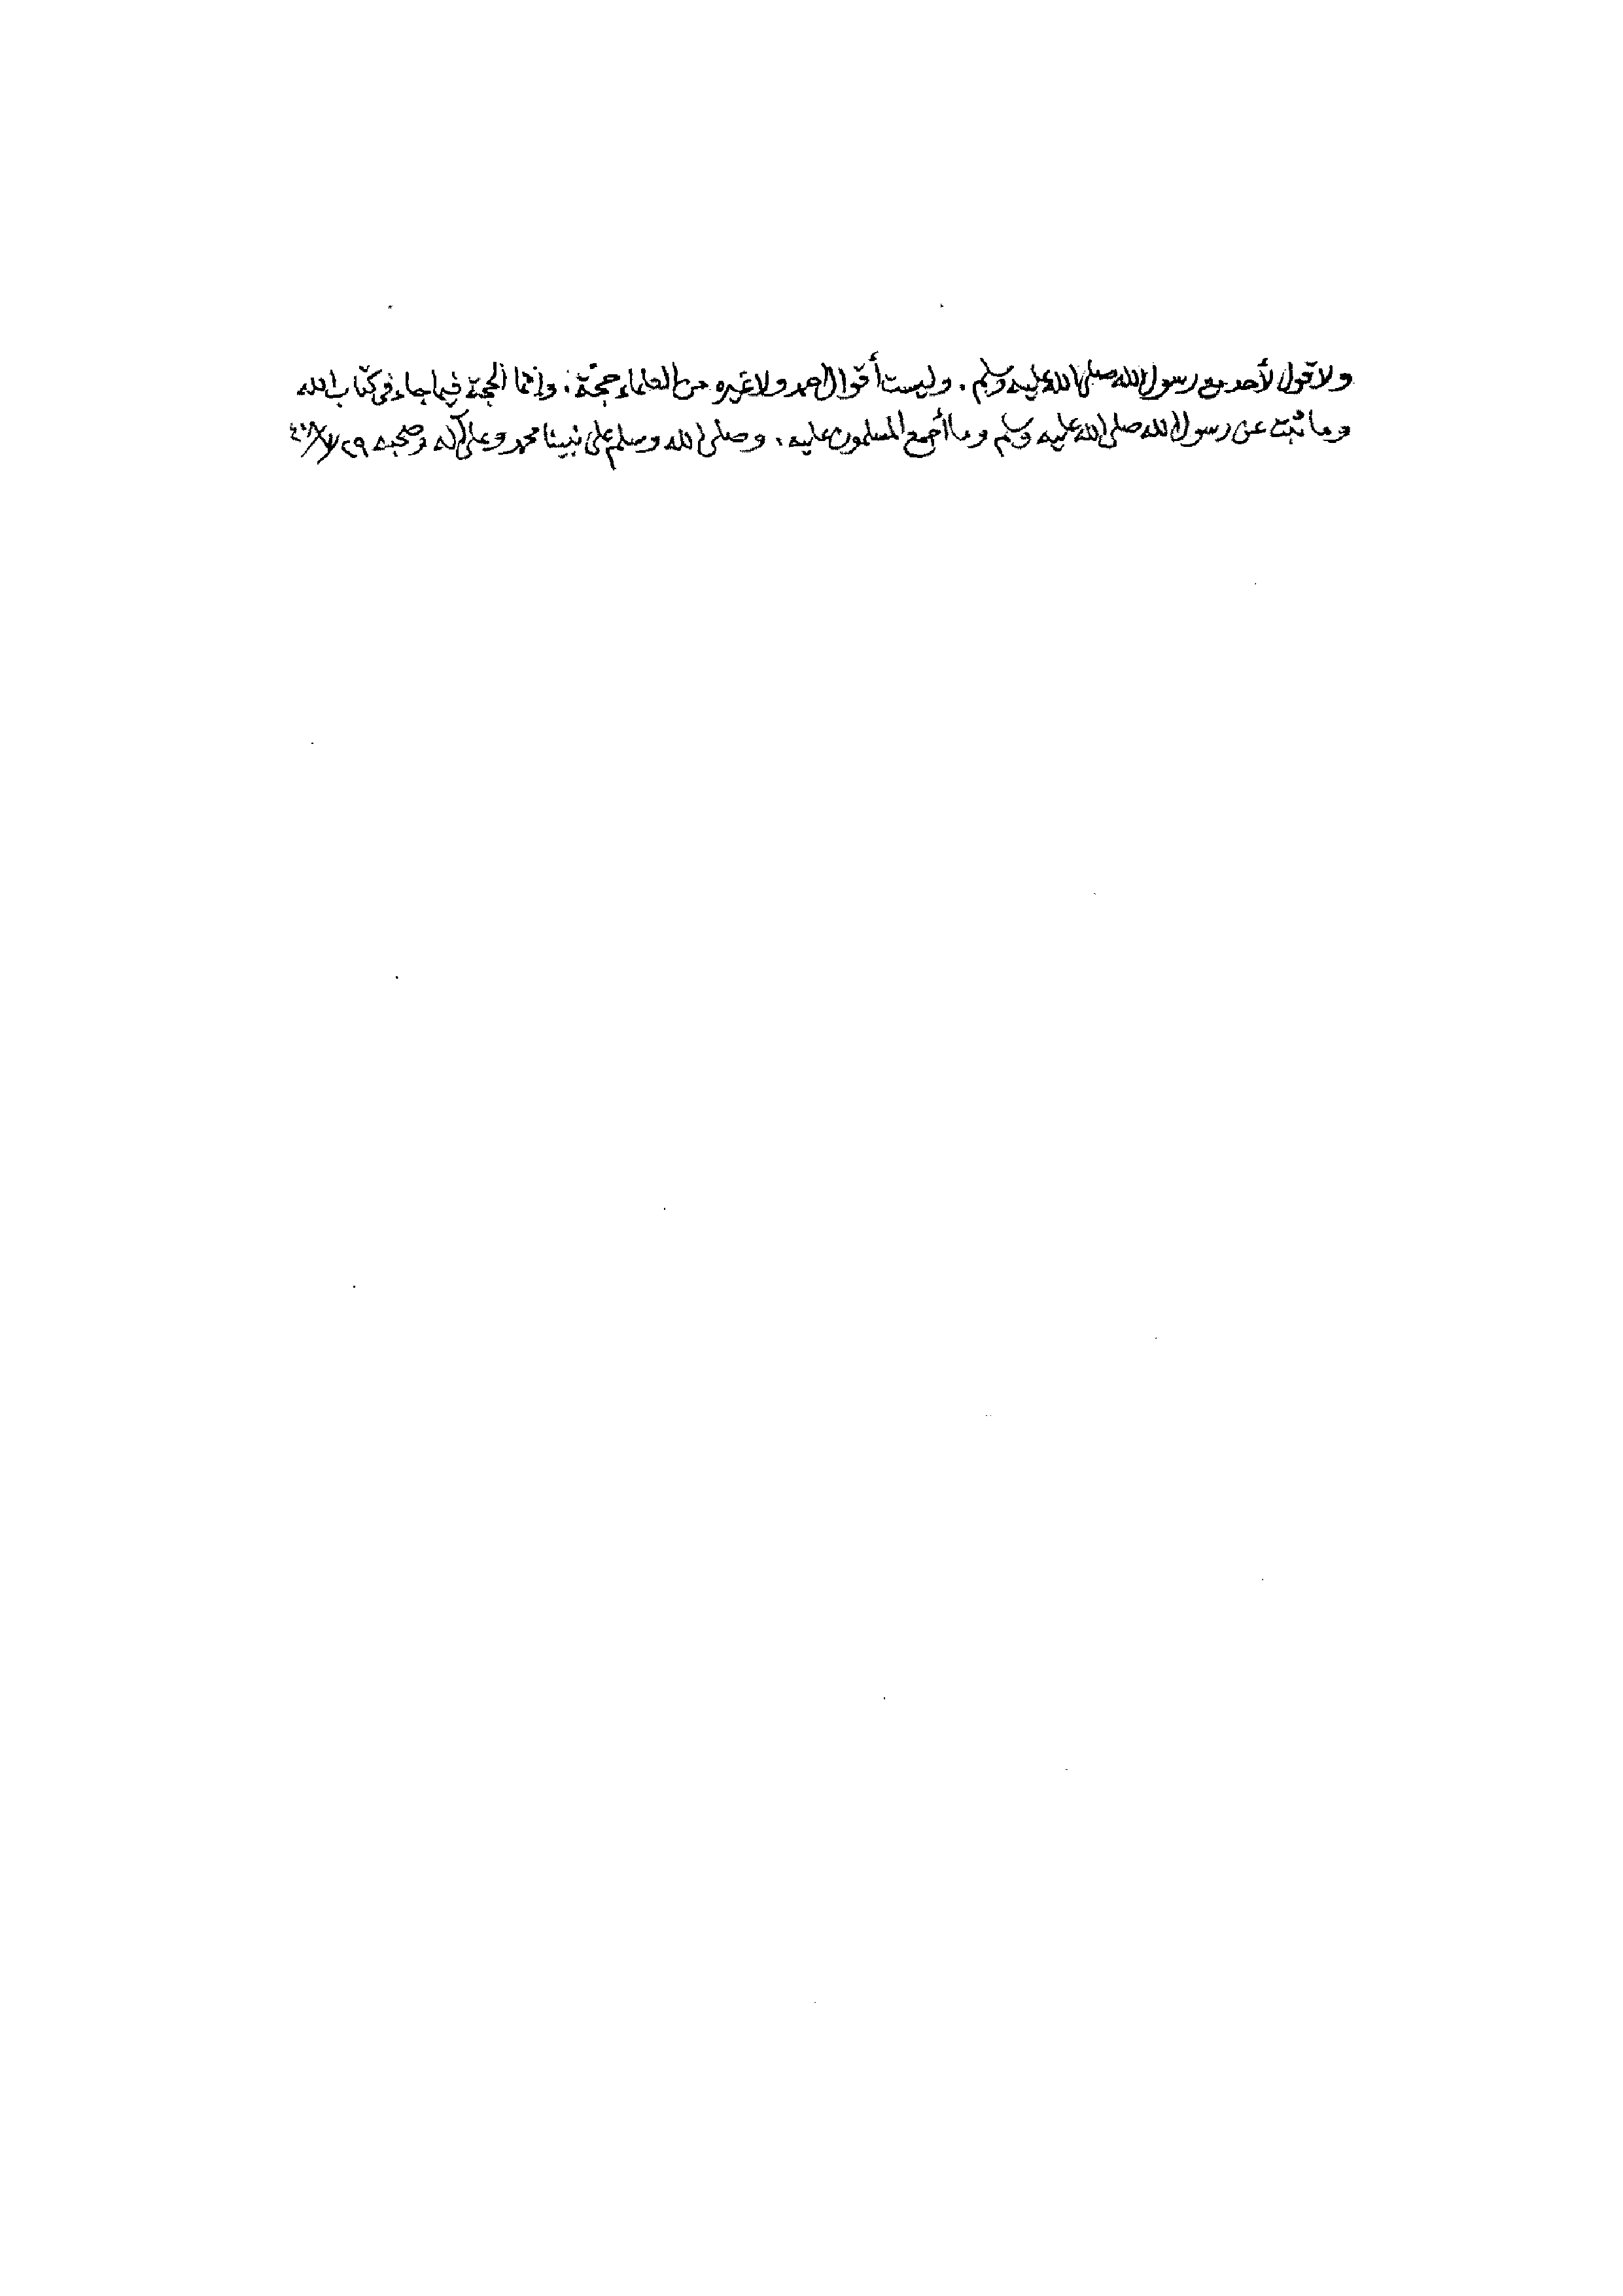 ولا قول لأحد مع رسول الله صلى الله عليه وسلم. وليست أقوال أحمد ولا غيره من العلماء حجّة، وإنما الحجة فيما جاء في كتاب الله
وما ثبت عن رسول الله صلى الله عليه وسلم وما أجمع المسلمون عليه، وصلى الله وسلم على نبينا محمد وعلى آله وصحبه